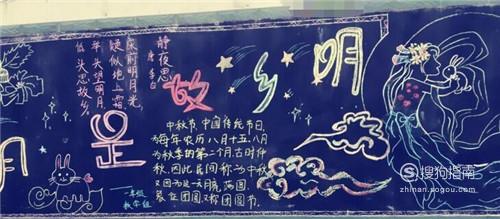 是故乡明
静夜思
唐 李白
床前明月光,
疑似地上霜
举头望明月,
低头思故乡。
中秋节,中国传统节日,
为每年农历八月十五,八月
为秋季的第二个月,古时仲
秋,因此民间称为中秋
又因为这一天月亮满圆,
象征团圆又称团圆节。
一年级
数学组
搜狗指南
zhinan.sogou.com